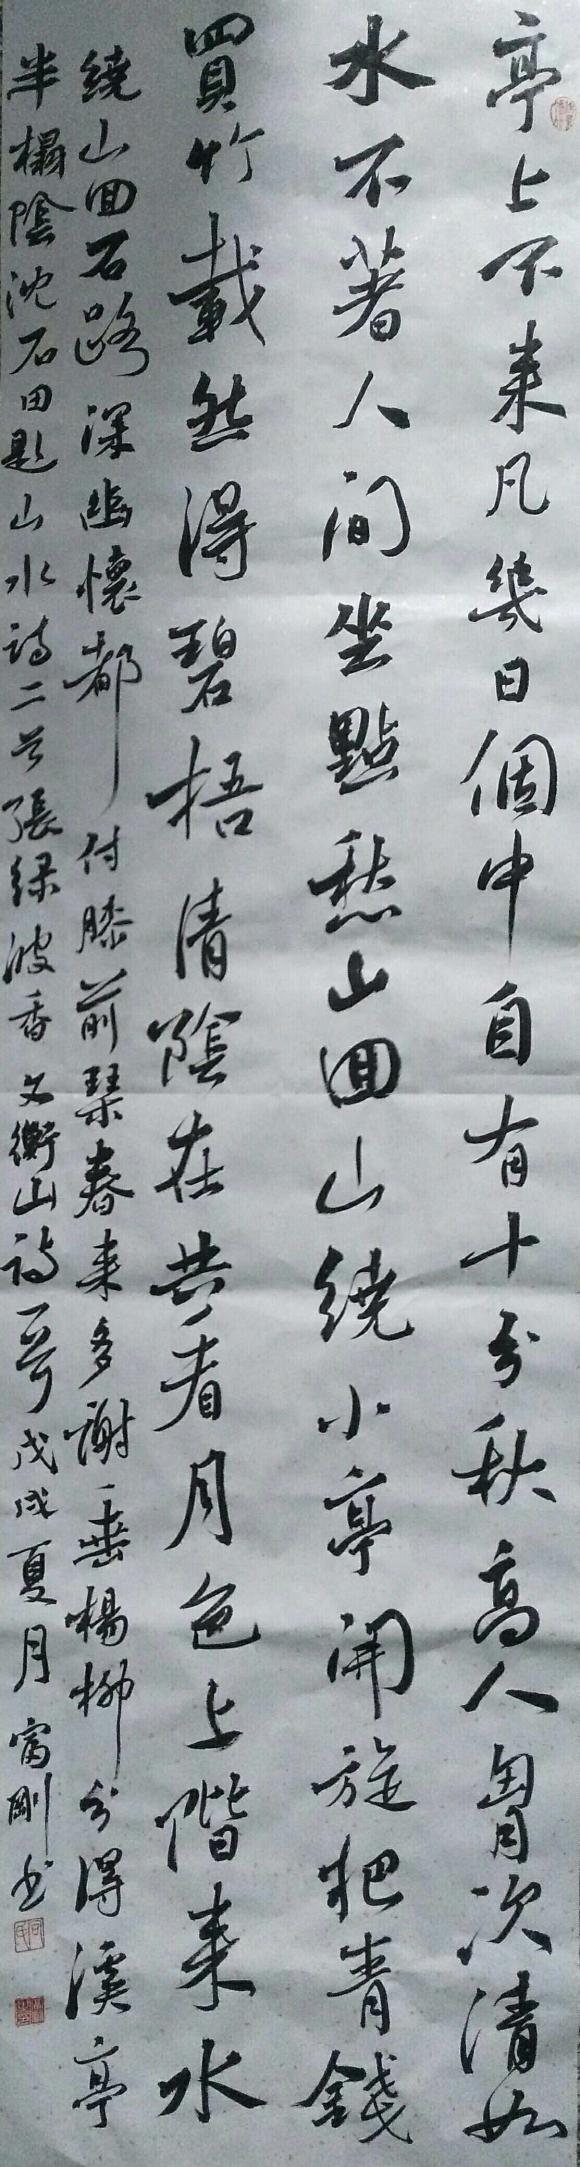 亭上不来凡幾日個中自有十分秋高人胷次清如
水不著人间坐點愁山回山绕小亭開旋把青錢
買竹載然得碧梧清陰在共看月色上階来水
绕山回石路深幽懷都付膝前琴春来多謝垂楊柳分得溪亭
半榻陰沈石田题山水诗二首張绿波香文衡山诗一首戊戌夏月富刚书